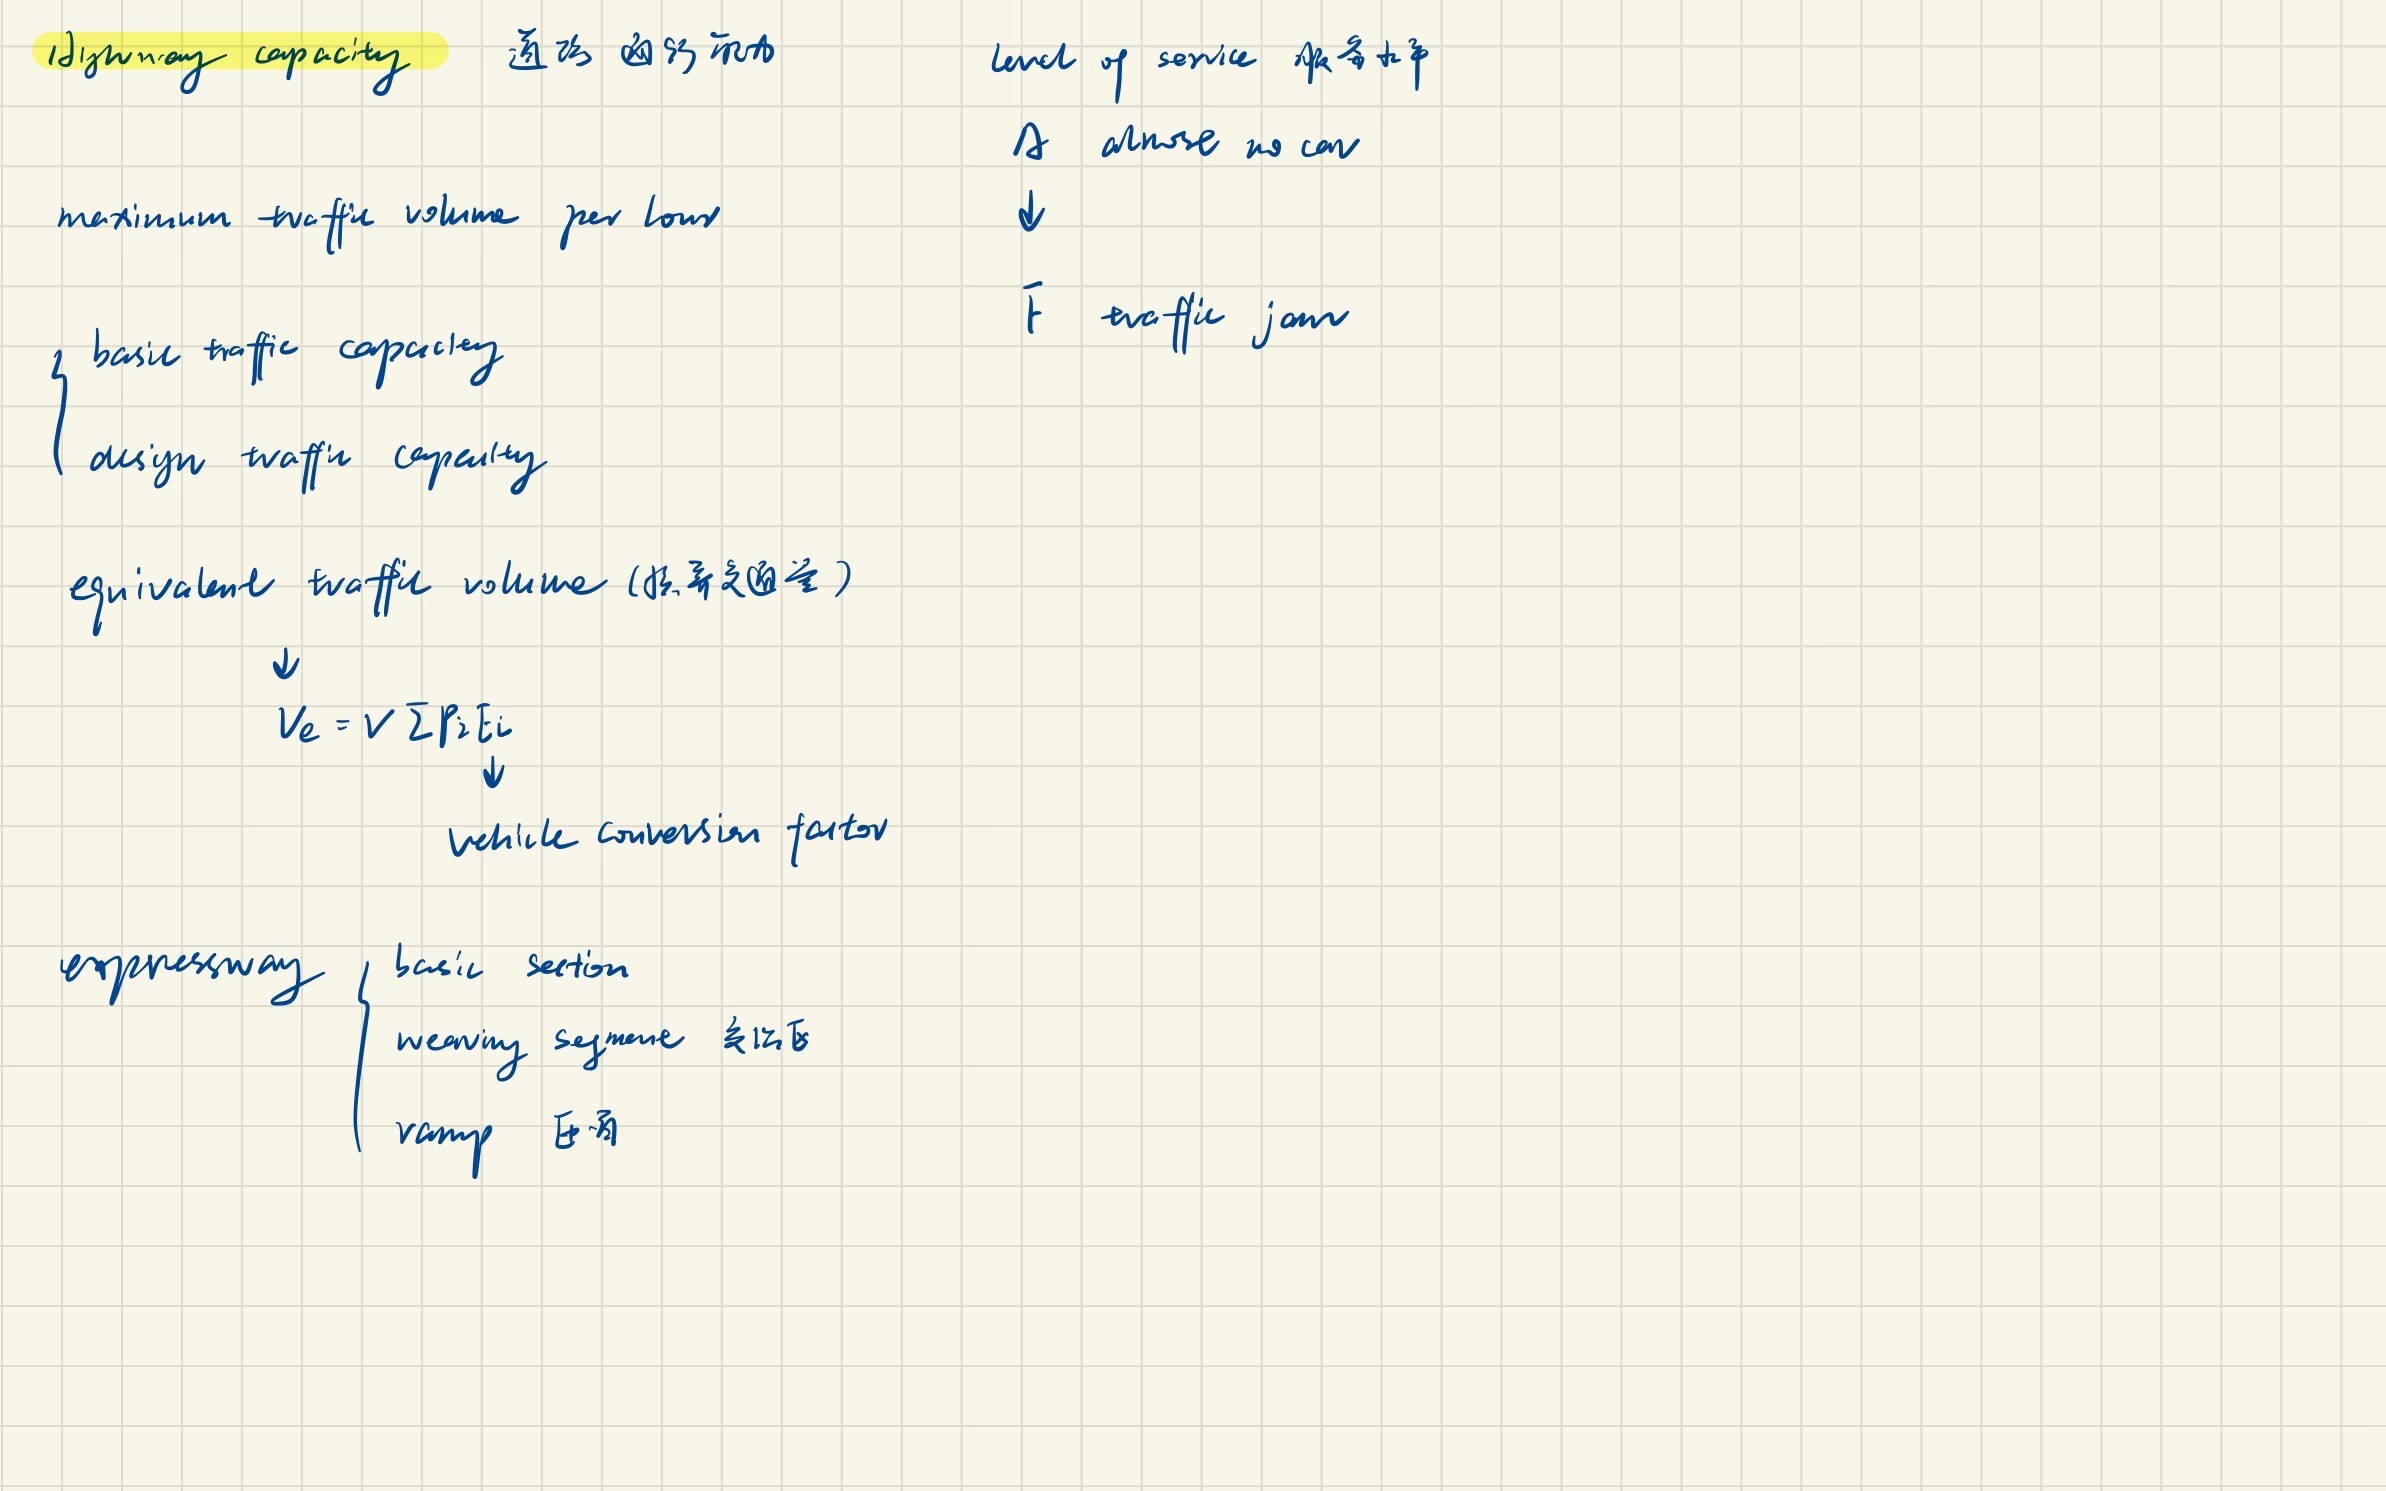 Highway capacity 道路通行能力
maximum traffic volume per hour
basic traffic capacity
design traffic capacity
equivalent traffic volume (折算交通量)
↓
Ve = V ΣPiEi
↓
vehicle conversion factor
expressway { basic section
weaving segment 交织区
ramp 匝道
level of service 服务水平
A almost no car
↓
F traffic jam